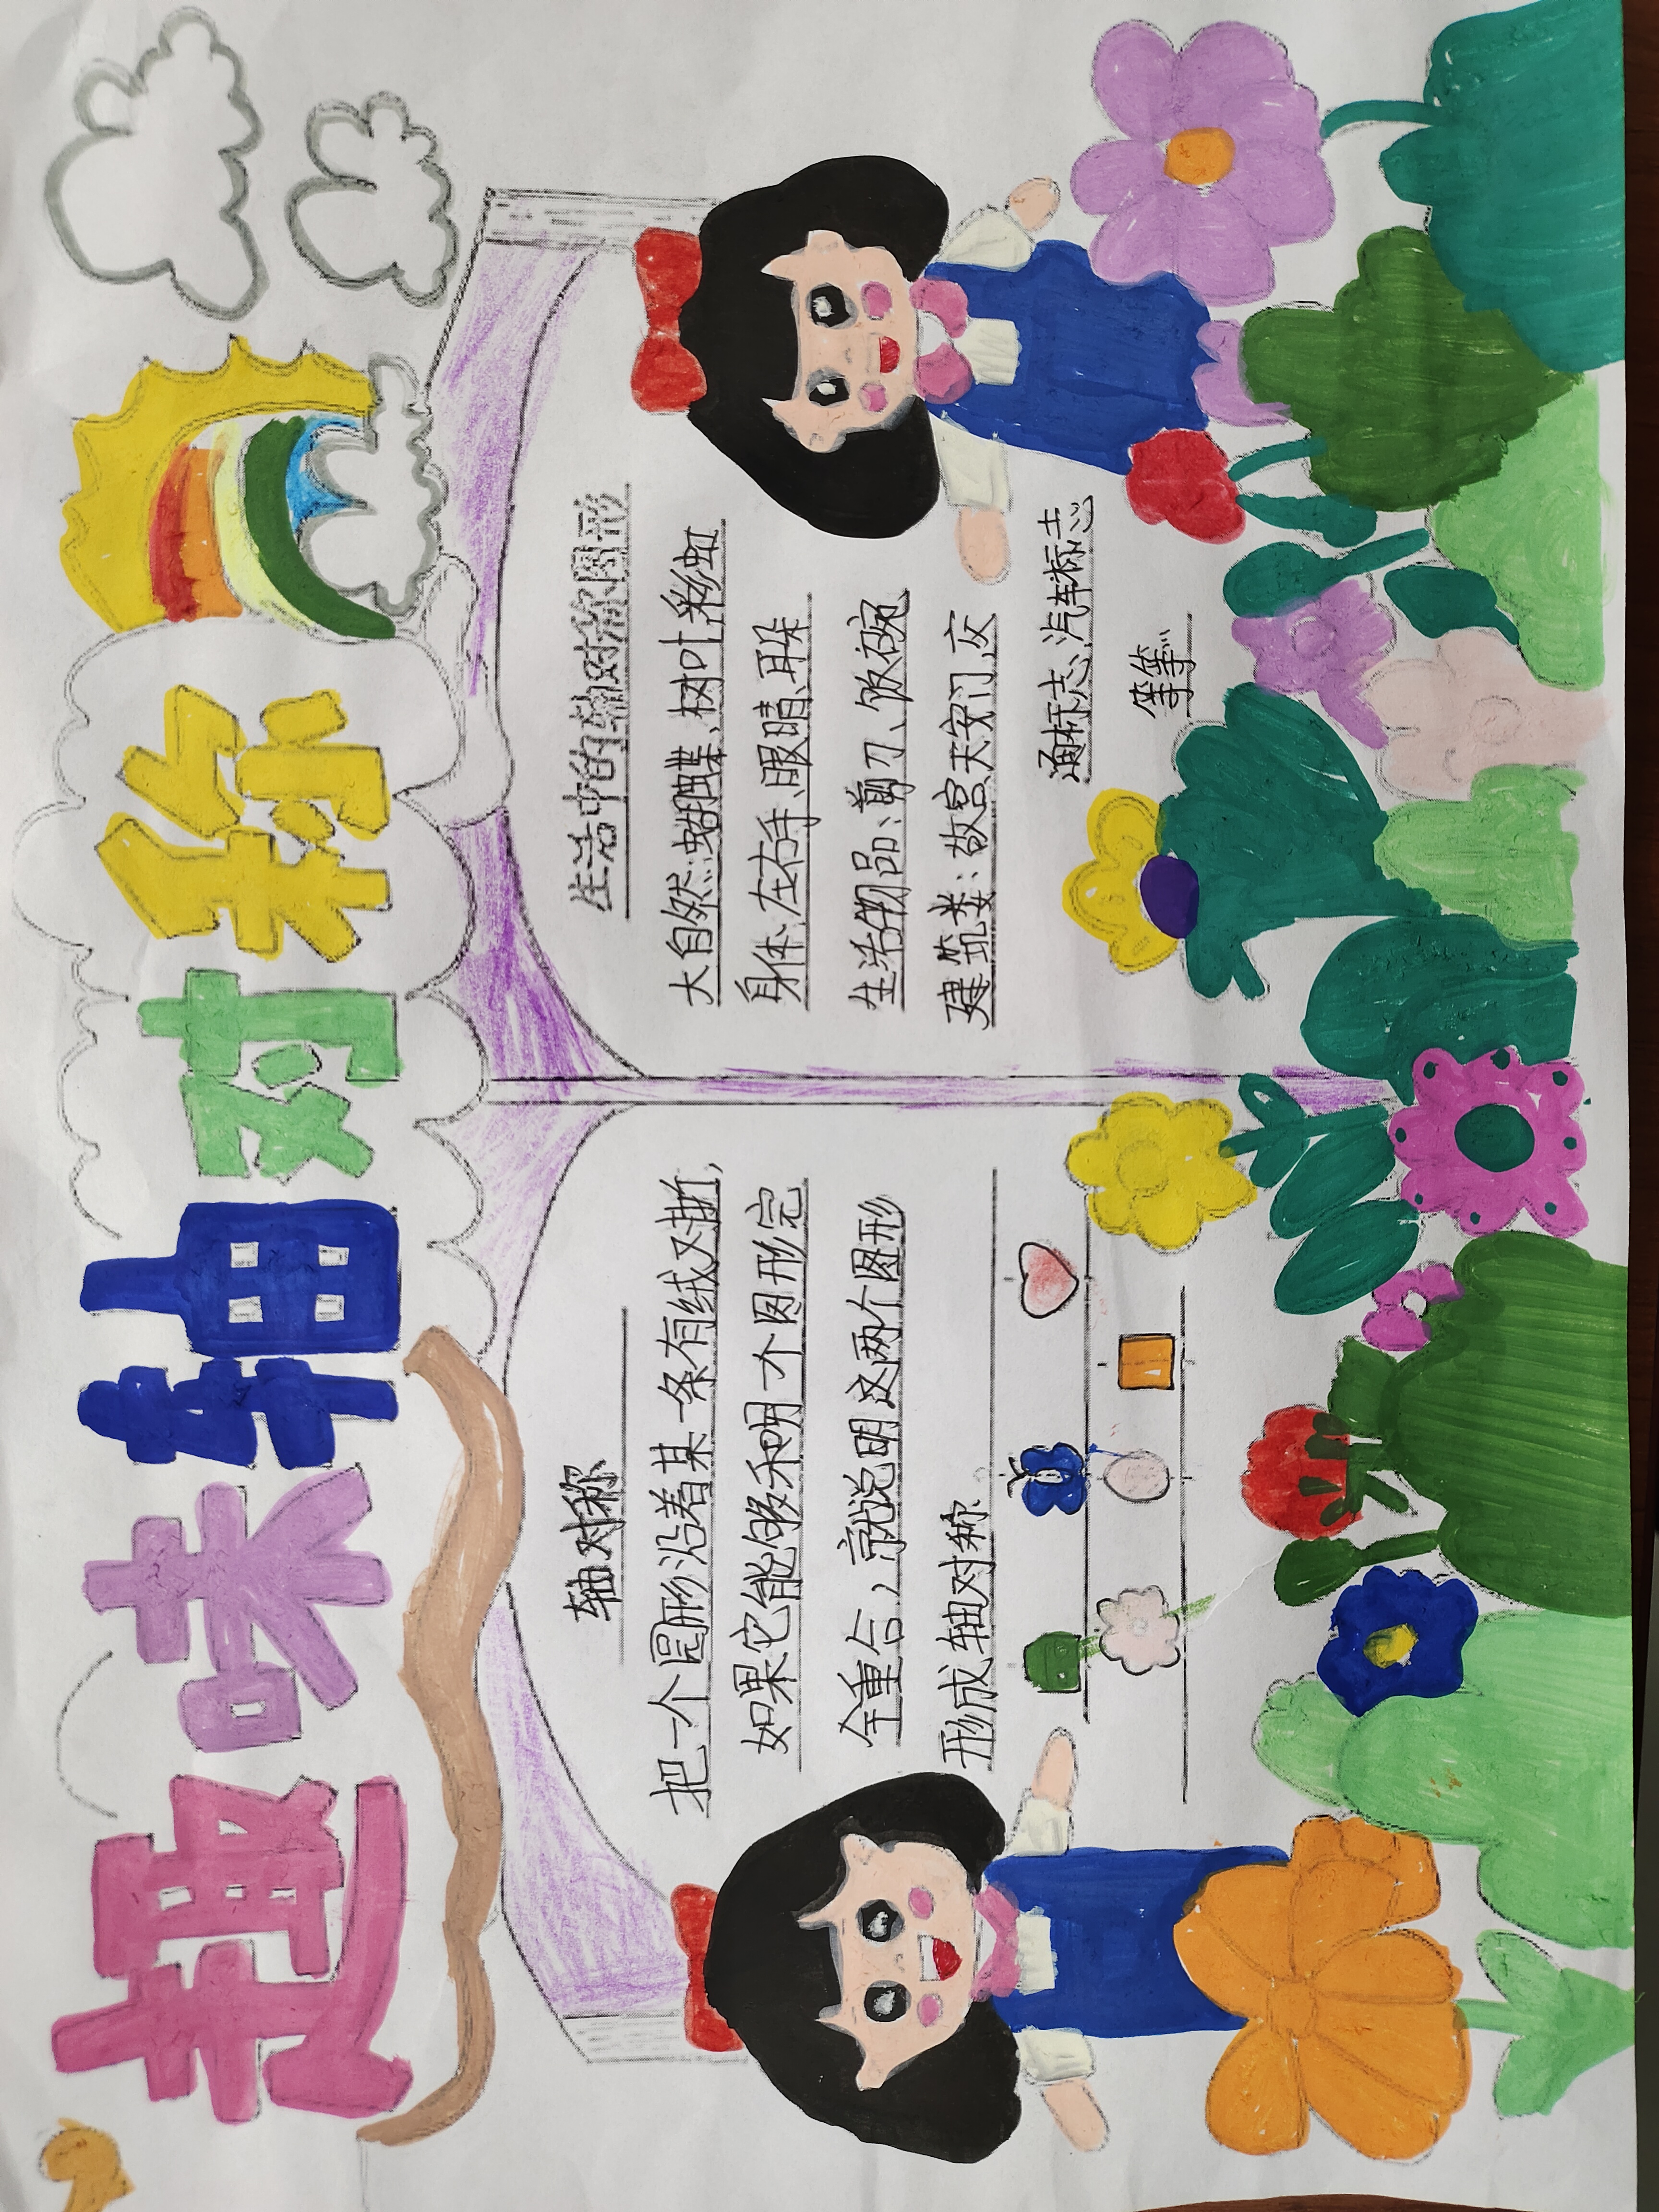 趣味轴对称
轴对称
把一个图形沿着某一条有线对折,
如果它能够和明一个图形完
全重合,就说明这两个图形
形成轴对称
生活中的轴对称图形
大自然:蝴蝶、树叶、彩虹
身体:左右手、眼睛、耳朵
生活物品:剪刀、饭碗
建筑类:故宫天安门,交
通标志,汽车标志
等等